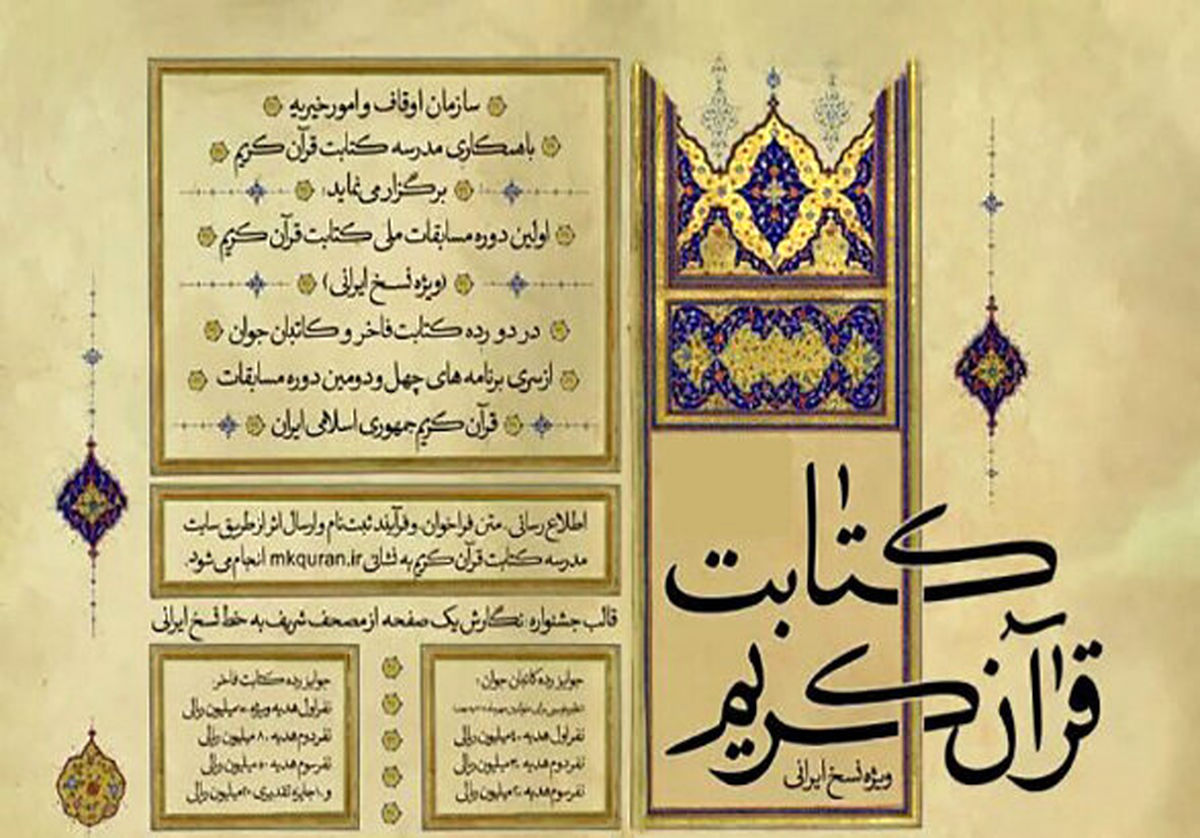 کتابت
قرآن کریم
ویژه نسخ ایرانی
سازمان اوقاف و امور خیریه
با همکاری مدرسه کتابت قرآن کریم
برگزار می‌نماید:
اولین دوره مسابقات ملی کتابت قرآن کریم
(ویژه نسخ ایرانی)
در دو رده کتابت فاخر و کاتبان جوان
از سری برنامه های چهل و دومین دوره مسابقات
قرآن کریم جمهوری اسلامی ایران
اطلاع رسانی، متن فراخوان و فرآیند ثبت نام و ارسال اثر از طریق سایت
مدرسه کتابت قرآن کریم به نشانی mkquran.ir انجام می‌شود.
قالب جشنواره: نگارش یک صفحه از مصحف شریف به خط نسخ ایرانی
جوایز رده کاتبان جوان:
نفر اول هدیه ۴۰ میلیون ریالی
نفر دوم هدیه ۳۰ میلیون ریالی
نفر سوم هدیه ۲۰ میلیون ریالی
جوایز رده کتابت فاخر:
نفر اول هدیه ویژه میلیون ریالی
نفر دوم هدیه ۸۰ میلیون ریالی
نفر سوم هدیه ۵۰ میلیون ریالی
و ۱۰ جایزه تقدیری ۲۰ میلیون ریالی